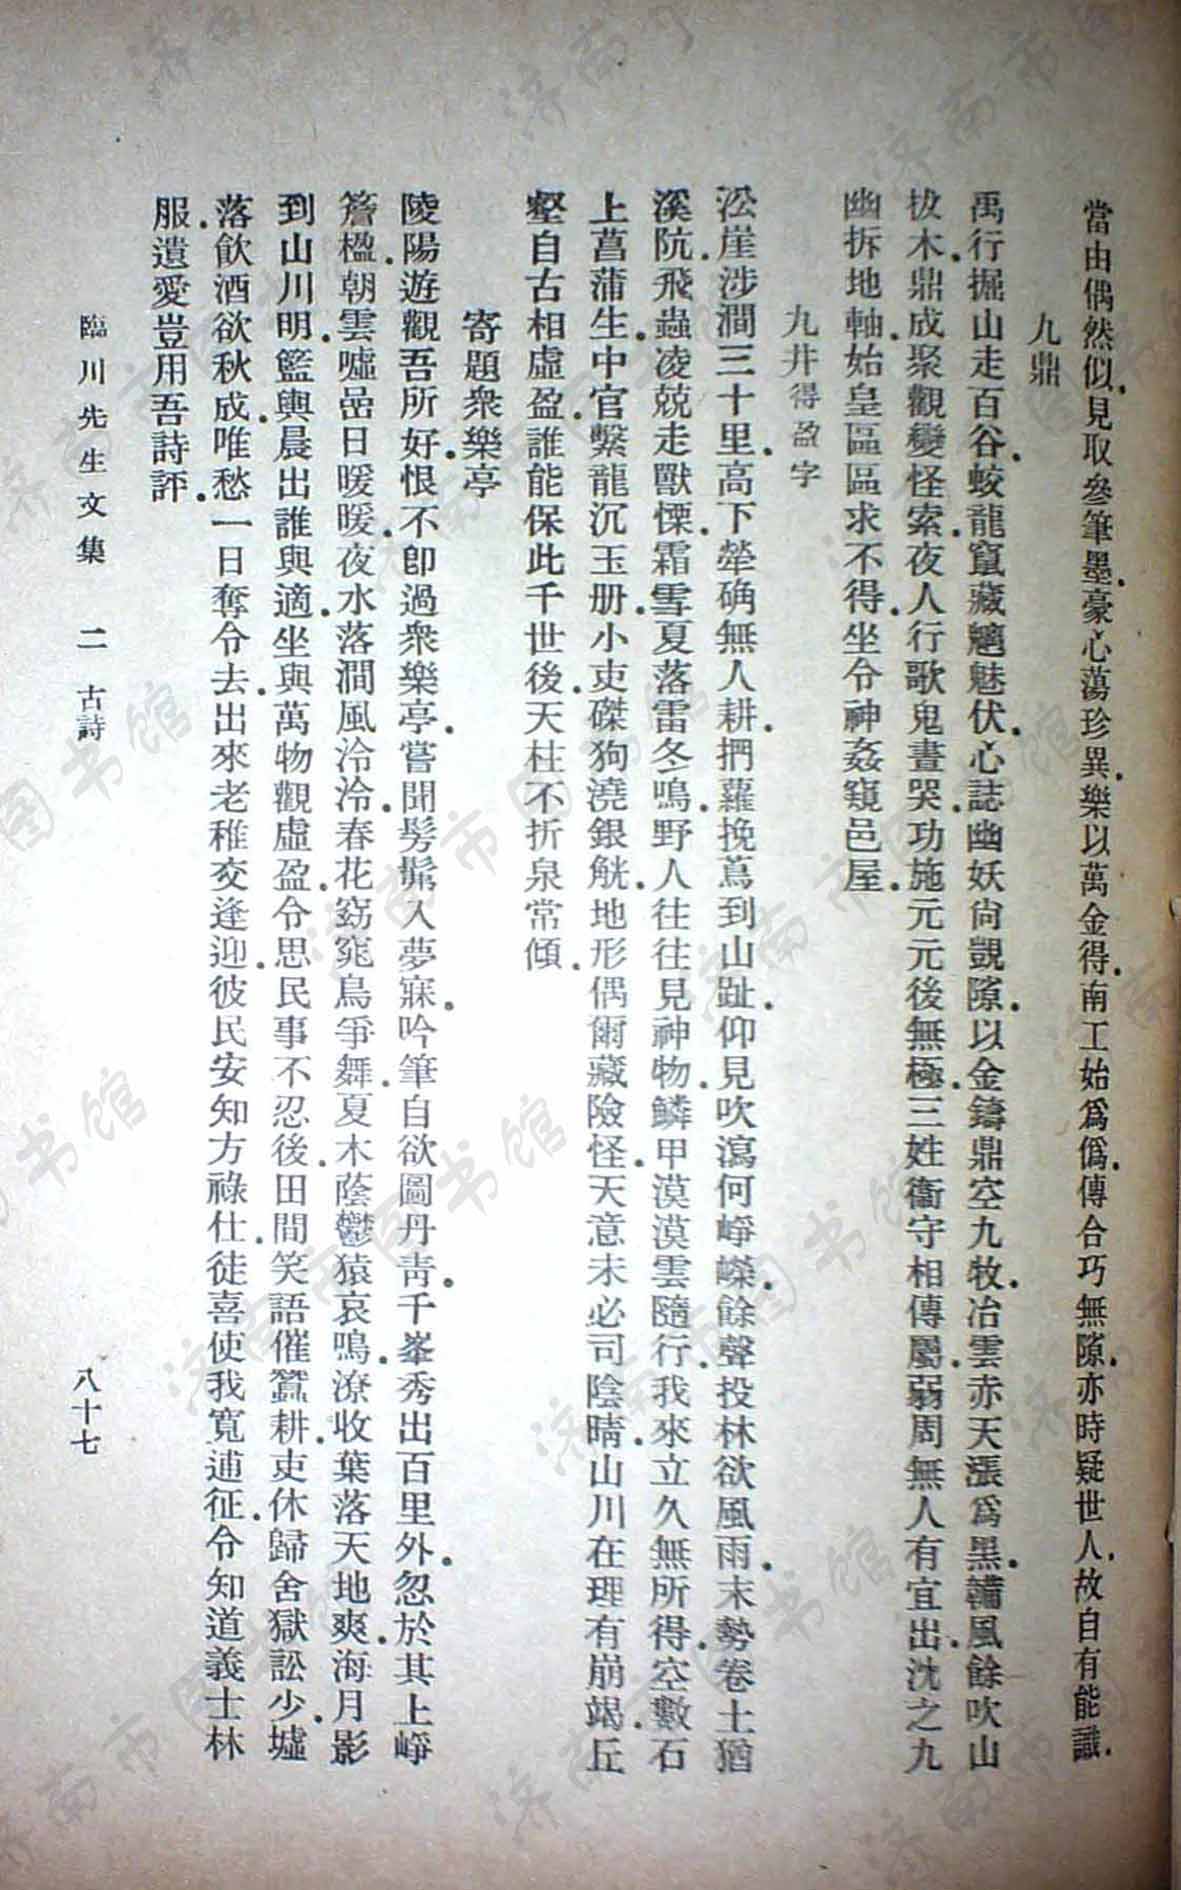 當由偶然似．見取參筆墨．豪心蕩珍異．樂以萬金得．南工始爲僞．傳合巧無隙．亦時疑世人．故自有能識．
九鼎
禹行掘山走百谷．蛟龍竄藏魑魅伏．心誌幽妖尙覬隙．以金鑄鼎空九牧．冶雲赤天漲爲黑．韛風餘吹山
拔木．鼎成聚觀變怪索．夜人行歌鬼晝哭．功施元元後無極．三姓衞守相傳屬．弱周無人有宜出．沈之九
幽拆地軸．始皇區區求不得．坐令神姦窺邑屋．
九井得盈字
沿崖涉澗三十里．高下犖确無人耕．捫蘿挽蔦到山趾．仰見吹瀉何崢嶸．餘聲投林欲風雨．末勢卷土猶
溪阬．飛蟲凌兢走獸慄．霜雪夏落雷冬鳴．野人往往見神物．鱗甲漠漠雲隨行．我來立久無所得．空數石
上菖蒲生．中官繫龍沉玉册．小吏磔狗澆銀觥．地形偶爾藏險怪．天意未必司陰晴．山川在理有崩竭．丘
壑自古相虛盈．誰能保此千世後．天柱不折泉常傾．
寄題衆樂亭
陵陽遊觀吾所好．恨不卽過衆樂亭．嘗聞髣髴入夢寐．吟筆自欲圖丹靑．千峯秀出百里外．忽於其上崢
簷楹．朝雲噓嵒日暖暖．夜水落澗風泠泠．春花窈窕鳥爭舞．夏木蔭鬱猿哀鳴．潦收葉落天地爽．海月影
到山川明．籃輿晨出誰與適．坐與萬物觀虛盈．令思民事不忍後．田間笑語催蠶耕．吏休歸舍獄訟少．墟
落飮酒欲秋成．唯愁一日奪令去．出來老稚交逢迎．彼民安知方祿仕．徒喜使我寬逋征．令知道義士林
服．遺愛豈用吾詩評．
臨川先生文集　二　古詩　八十七
济南市图书馆